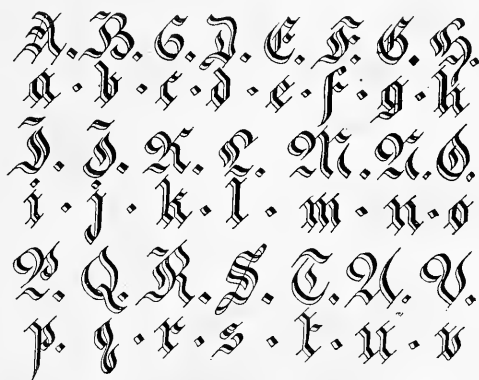 A. B. C. D. E. F. G. H.
a · b · c · d · e · f · g · h
I. J. K. L. M. N. O.
i · j · k · l · m · n · o
P. Q. R. S. T. U. V.
p. q · r · s · t · u · v